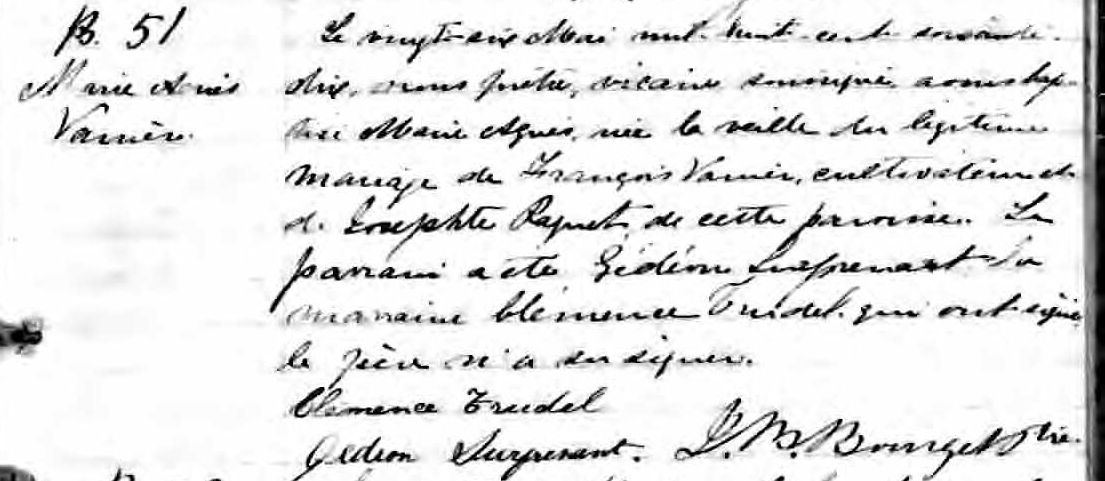 B. 51
Marie Agnès
Vanier.
Le vingt-six Mai mil-huit-cent-soixante-
dix, nous prêtre, vicaire soussigné avons bap-
tisé Marie Agnès, née la veille du légitime
mariage de François Vanier, cultivateur et
de Josephte Paquet, de cette paroisse. Le
parrain a été Gédéon Surprenant. La
marraine Clémence Trudel. qui ont signé
le père n'a su signer.
Clémence Trudel
Gédeon Surprenant. J. B. Bourget Ptre.